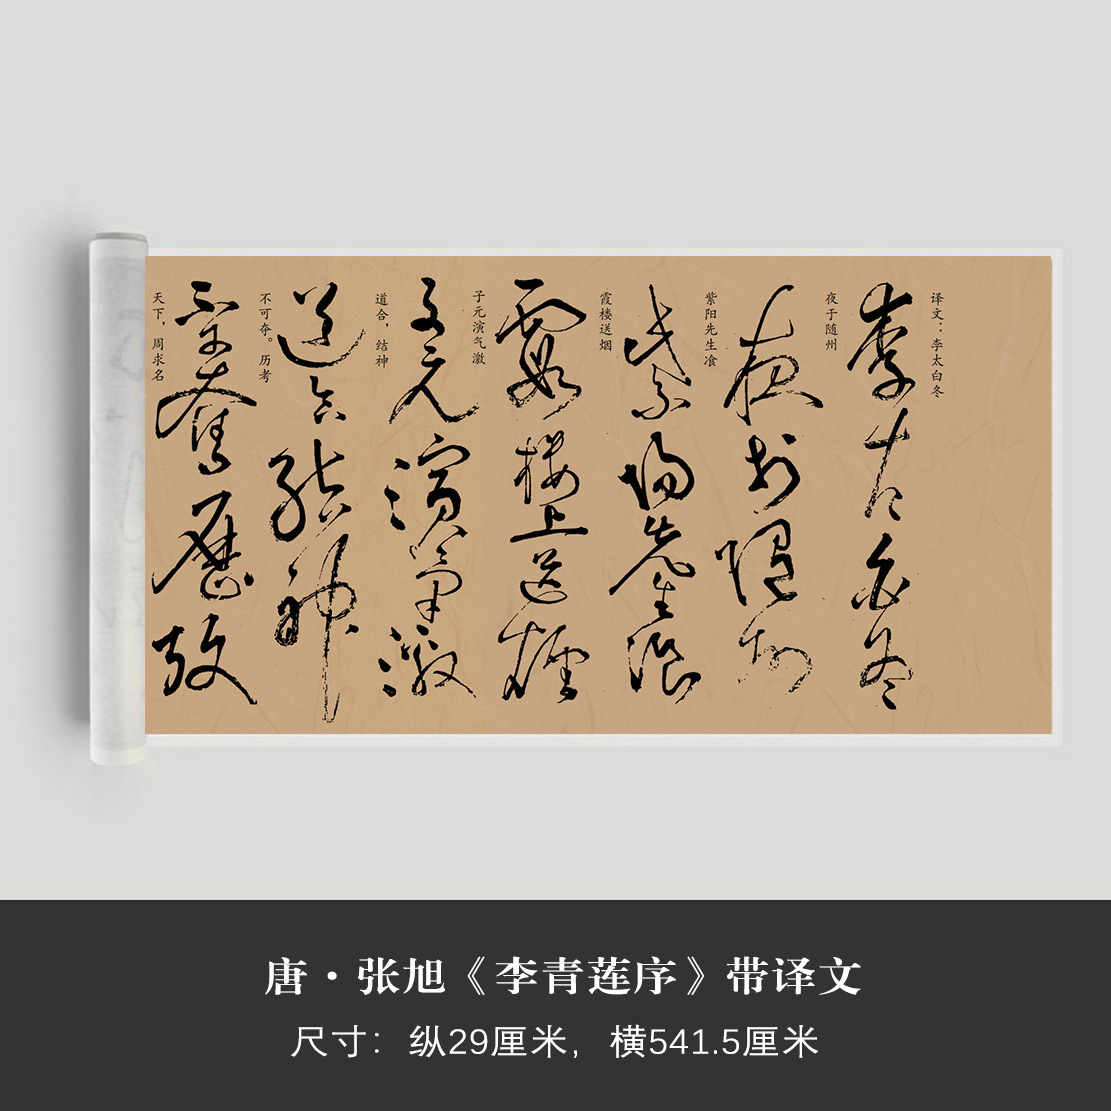 译文：李太白冬
李太白冬
夜于随州
夜於隨州
紫阳先生飡
紫陽先生飡
霞楼送烟
霞樓上送煙
子元演气激
子元演氣激
道合，结神
道合結神
不可夺。历考
不可奪歷攷
天下，周求名
唐·张旭《李青莲序》带译文
尺寸：纵29厘米，横541.5厘米